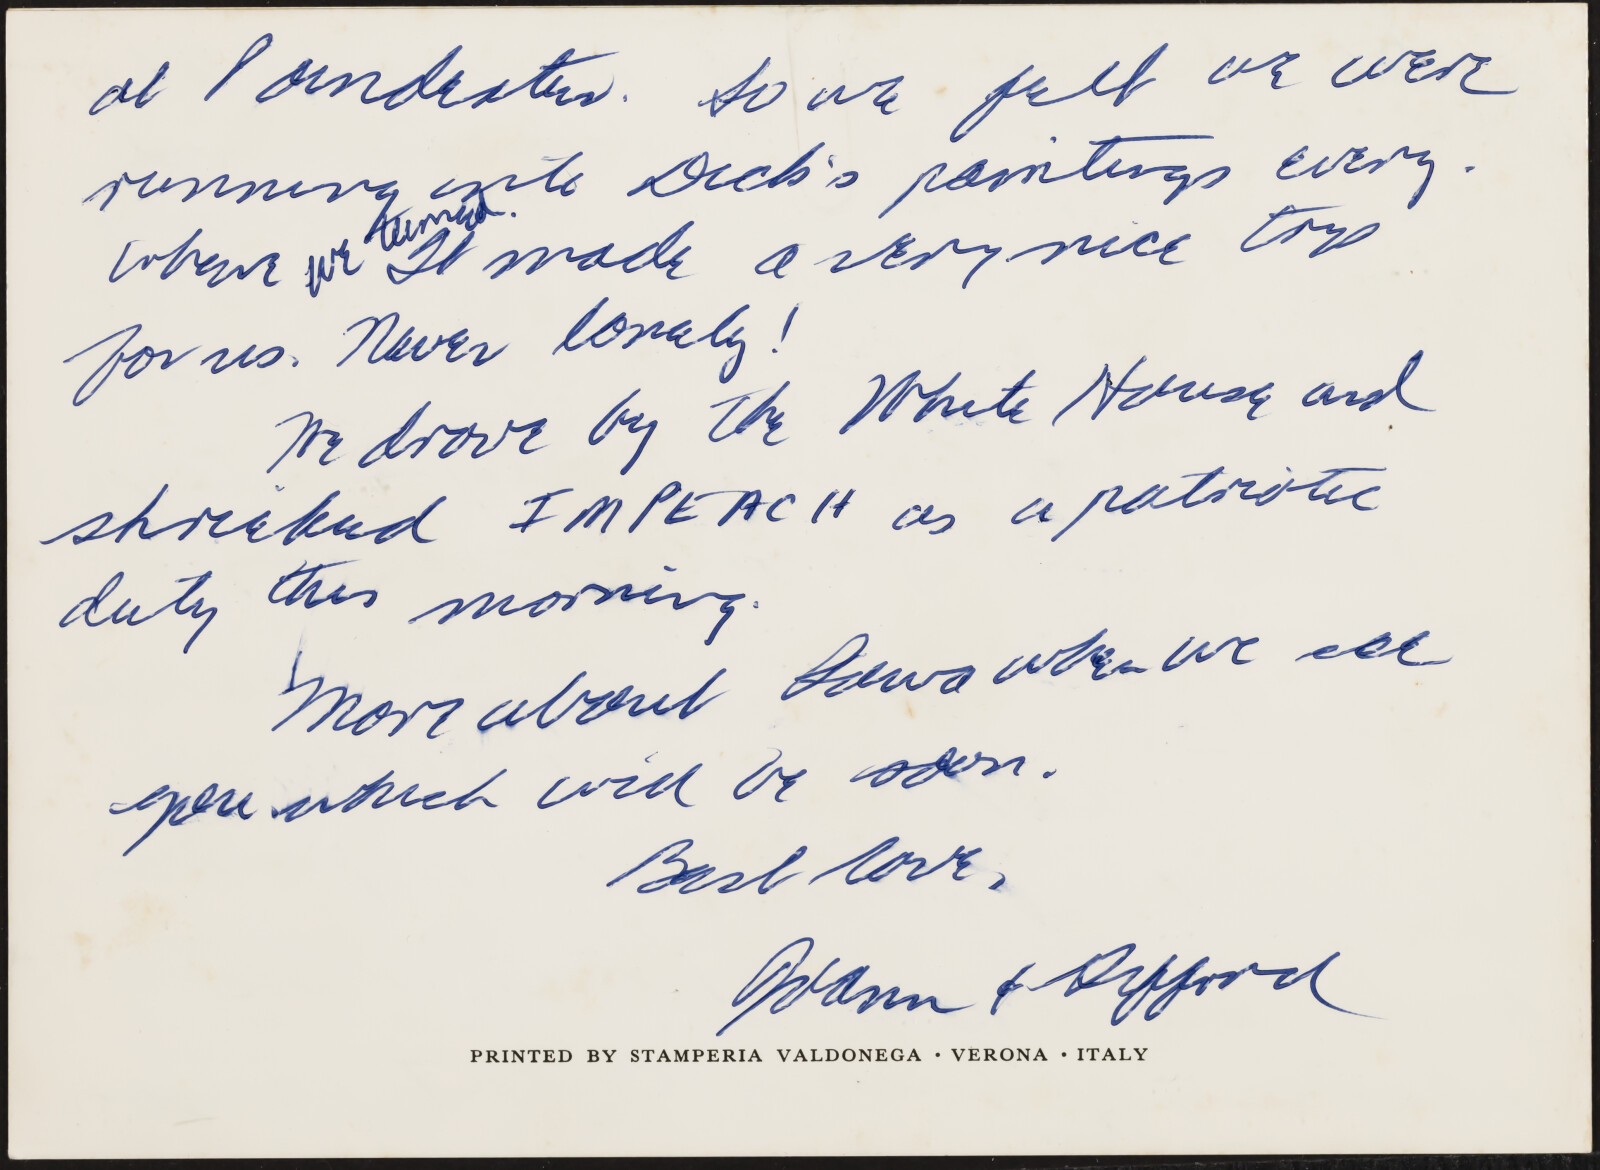 at Poindexter. So we felt we were
running into Dick's paintings every.
where we turned. It made a very nice trip
for us. Never lonely!
We drove by the White House and
shrieked IMPEACH as a patriotic
duty this morning.
More about Iowa when we see
you which will be soon.
Best love,
JoAnn & Gifford
PRINTED BY STAMPERIA VALDONEGA • VERONA • ITALY